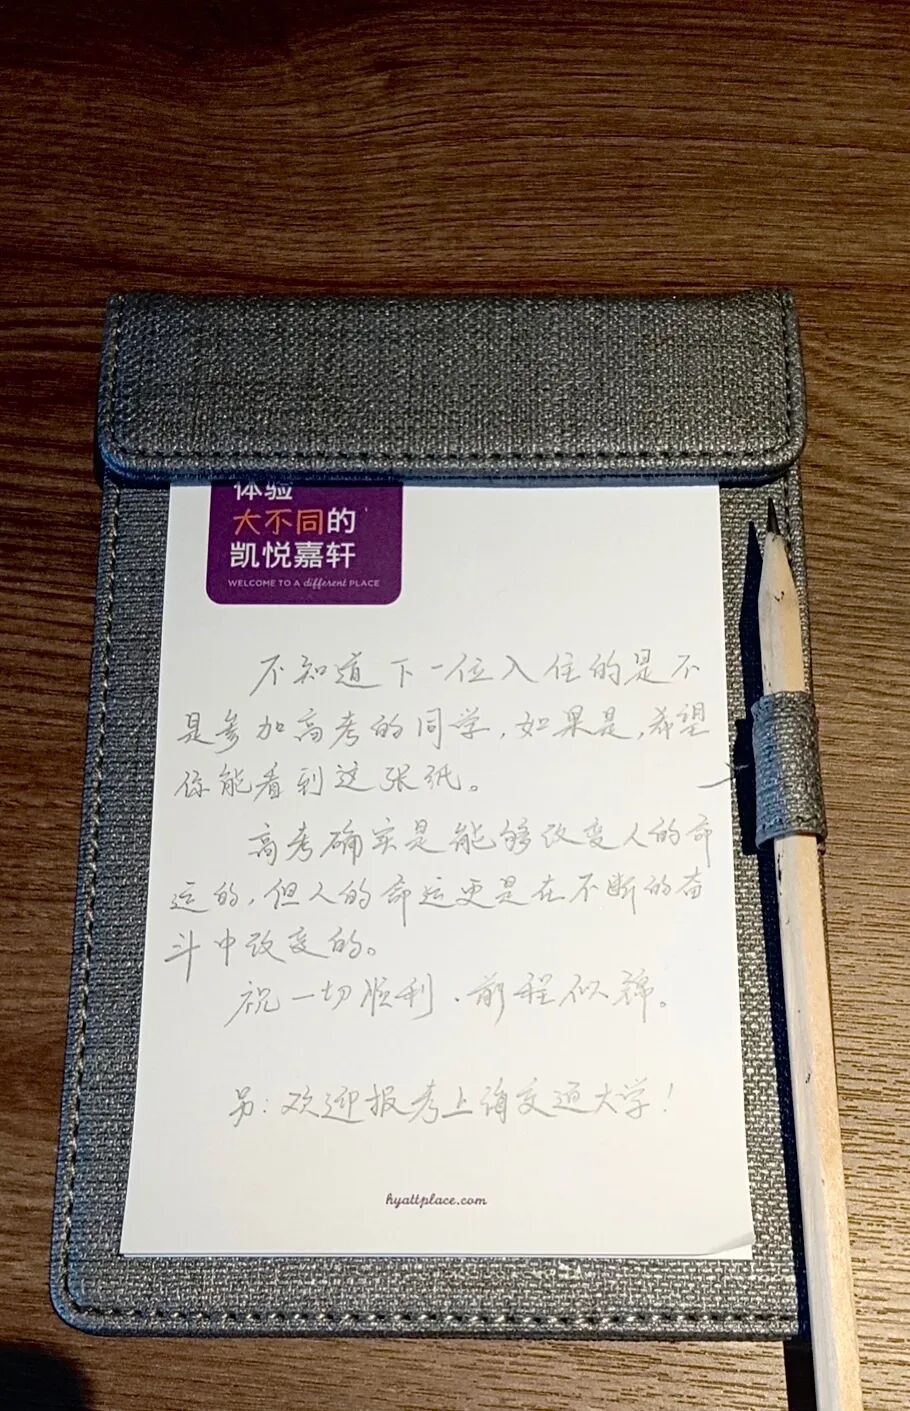 体验
大不同的
凯悦嘉轩
WELCOME TO A different PLACE
不知道下一位入住的是不
是参加高考的同学,如果是,希望
你能看到这张纸。
高考确实是能够改变人的命
运的,但人的命运更是在不断的奋
斗中改变的。
祝一切顺利、前程似锦。
另:欢迎报考上海交通大学!
hyattplace.com